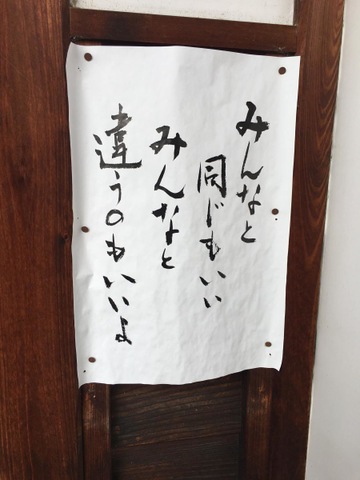 みんなと
同じもいい
みんなと
違うのもいいよ